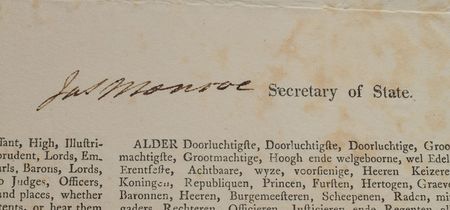 Jas Monroe Secretary of State.
High, Illuſtri-
prudent, Lords, Em-
Barons, Lords,
Judges, Officers,
and places, whether
or hear them
ALDER Doorluchtigſte, Doorluchtigſte, Doorluchtige, Groo
machtigſte, Grootmachtige, Hoogh ende welgeboorne, wel Edel
Erentfeſte, Achtbaare, wyze, voorſienige, Heeren Keizere
Koningen, Republiquen, Princen, Furſten, Hertogen, Graeve
Baronnen, Heeren, Burgemeeſteren, Scheepenen, Raden, mi
gaders Rechteren, Officieren, Juſticieren ende